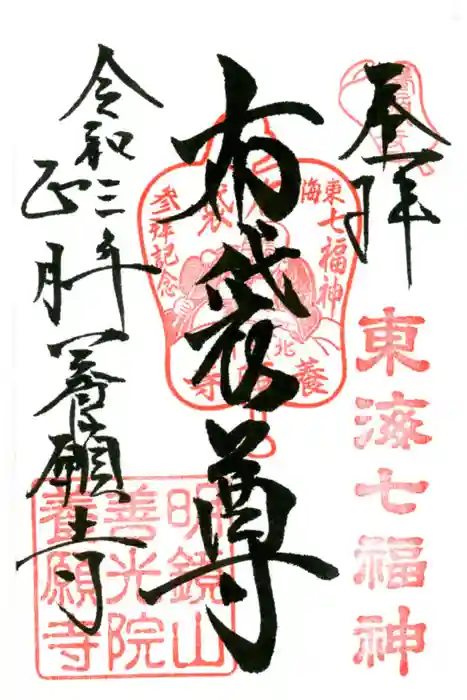 奉拝
東海七福神
布袋尊
東海七福神
参拝記念
北
養願寺
令和三年
正月
養願寺
明鏡山
善光院
養願寺